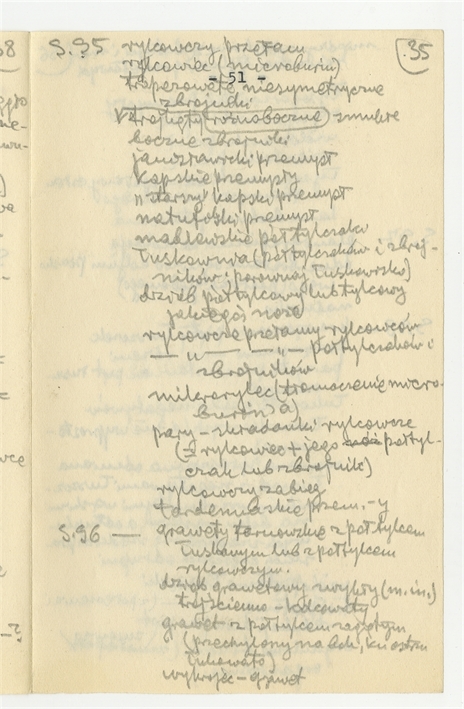 S.95 rylcowczy przełam
35
rylcowiec (microburin)
- 51 -
trapezowate niesymetryczne
zbrojniki
trójkąty równoboczne smukłe
boczne zbrojniki
janisławicki przemysł
kapskie przemysły
n starszy kapski przemysł
natufijski przemysł
półtylczaki
Łuskownia (półtylczaków i zbroj-
ników; porównaj Łuskowisko)
dziób półtylcowy lub tylcowy
jakiegoś noża
rylcowcze przełamy rylcowców
— " — — " — półtylczaków i
zbrojników
mikrorylec (tłomaczenie micro-
burin'a)
pary - składanki rylcowcze
(= rylcowiec + jego półtyl-
czak lub zbrojnik)
rylcowczy zabieg
tardenuaskie przem. -y
S.96 — grawety tarnowskie z półtylcem
Łuskanym lub z półtylcem
rylcowczym.
dziób grawetowy zwykły (m.in.)
trójścienno - łódkowaty
grawet z półtylcem
(przechylony na bok, ku ostrzu
Łukowato)